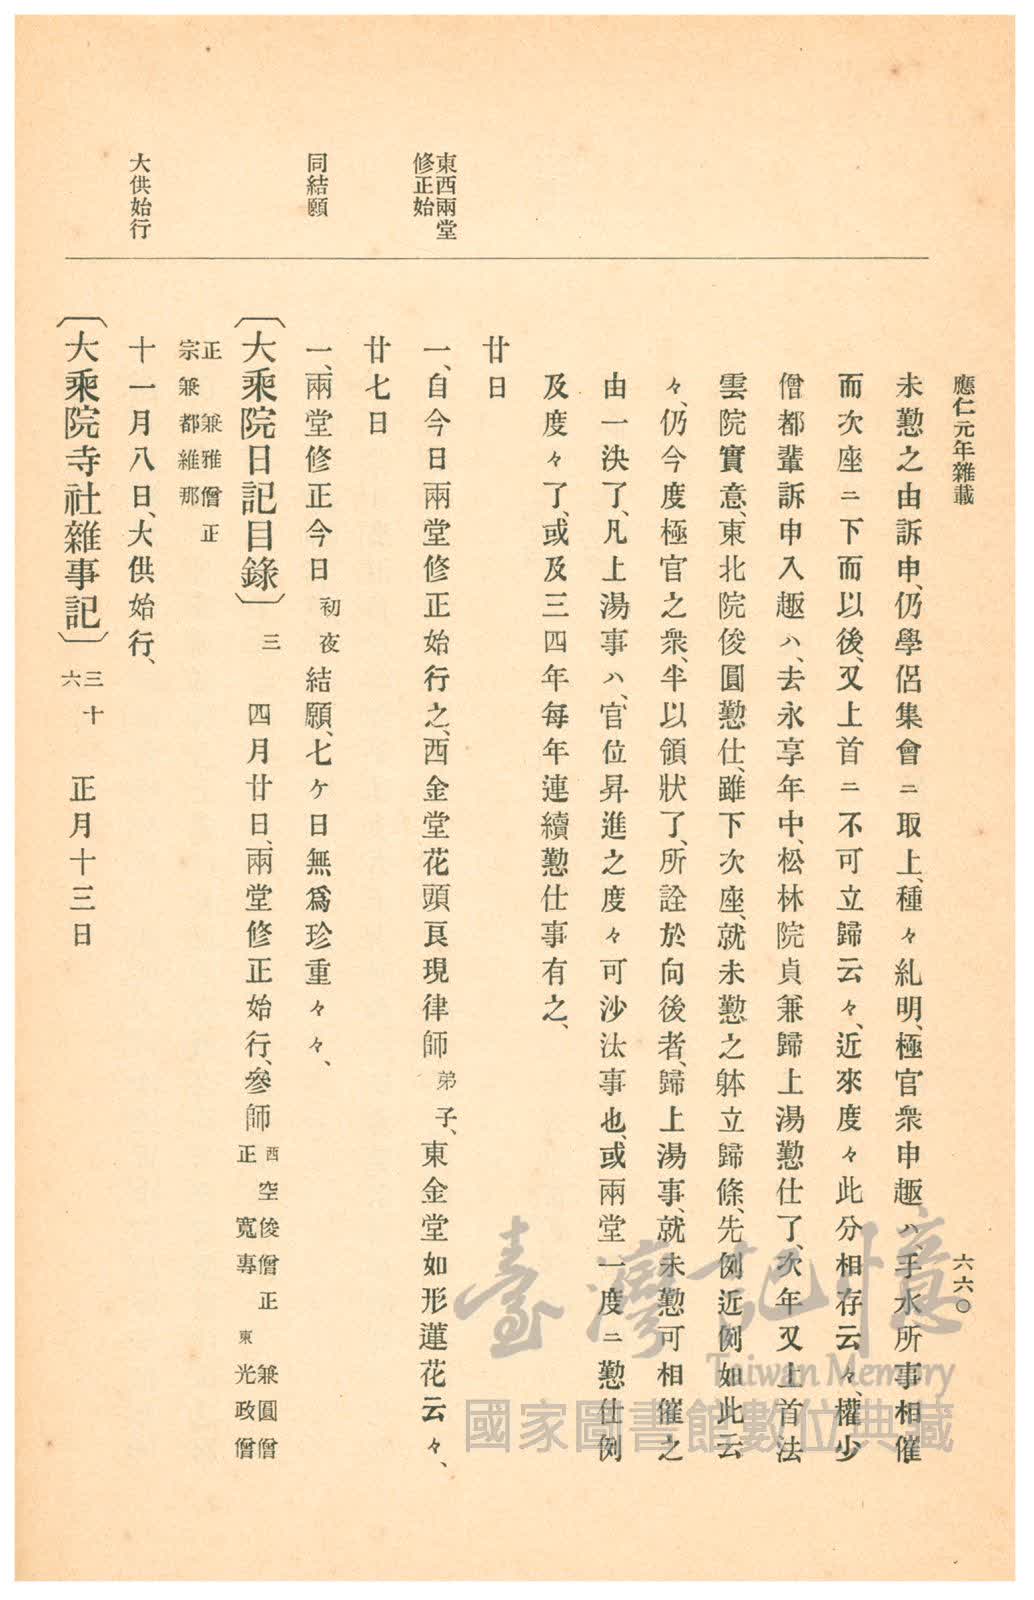 應仁元年雜載
六六〇
未懃之由訴申、仍學侶集會ニ取上、種々糺明、極官衆申趣ハ、手水所事相催
而次座ニ下而以後、又上首ニ不可立歸云々、近來度々此分相存云々、權少
僧都輩訴申入趣ハ、去永享年中、松林院貞兼歸上湯懃仕了、次年又上首法
雲院實意、東北院俊圓懃仕、雖下次座、就未懃之躰立歸條、先例近例如此云
々、仍今度極官之衆、半以領狀了、所詮於向後者、歸上湯事、就未懃可相催之
由一決了、凡上湯事ハ、官位昇進之度々可沙汰事也、或兩堂一度ニ懃仕例
及度々了、或及三四年每年連續懃仕事有之、
廿日
東西兩堂
修正始
一、自今日兩堂修正始行之、西金堂花頭良現律師弟子、東金堂如形蓮花云々、
廿七日
同結願
一、兩堂修正今日初夜結願、七ケ日無爲珍重々々、
〔大乘院日記目錄〕三 四月廿日、兩堂修正始行、參師西空俊僧正 東兼圓僧
正 寬專 光政僧
正 兼雅僧正
宗兼都維那
大供始行
十一月八日、大供始行、
〔大乘院寺社雜事記〕三十
六 正月十三日
臺灣記憶
Taiwan Memory
國家圖書館數位典藏